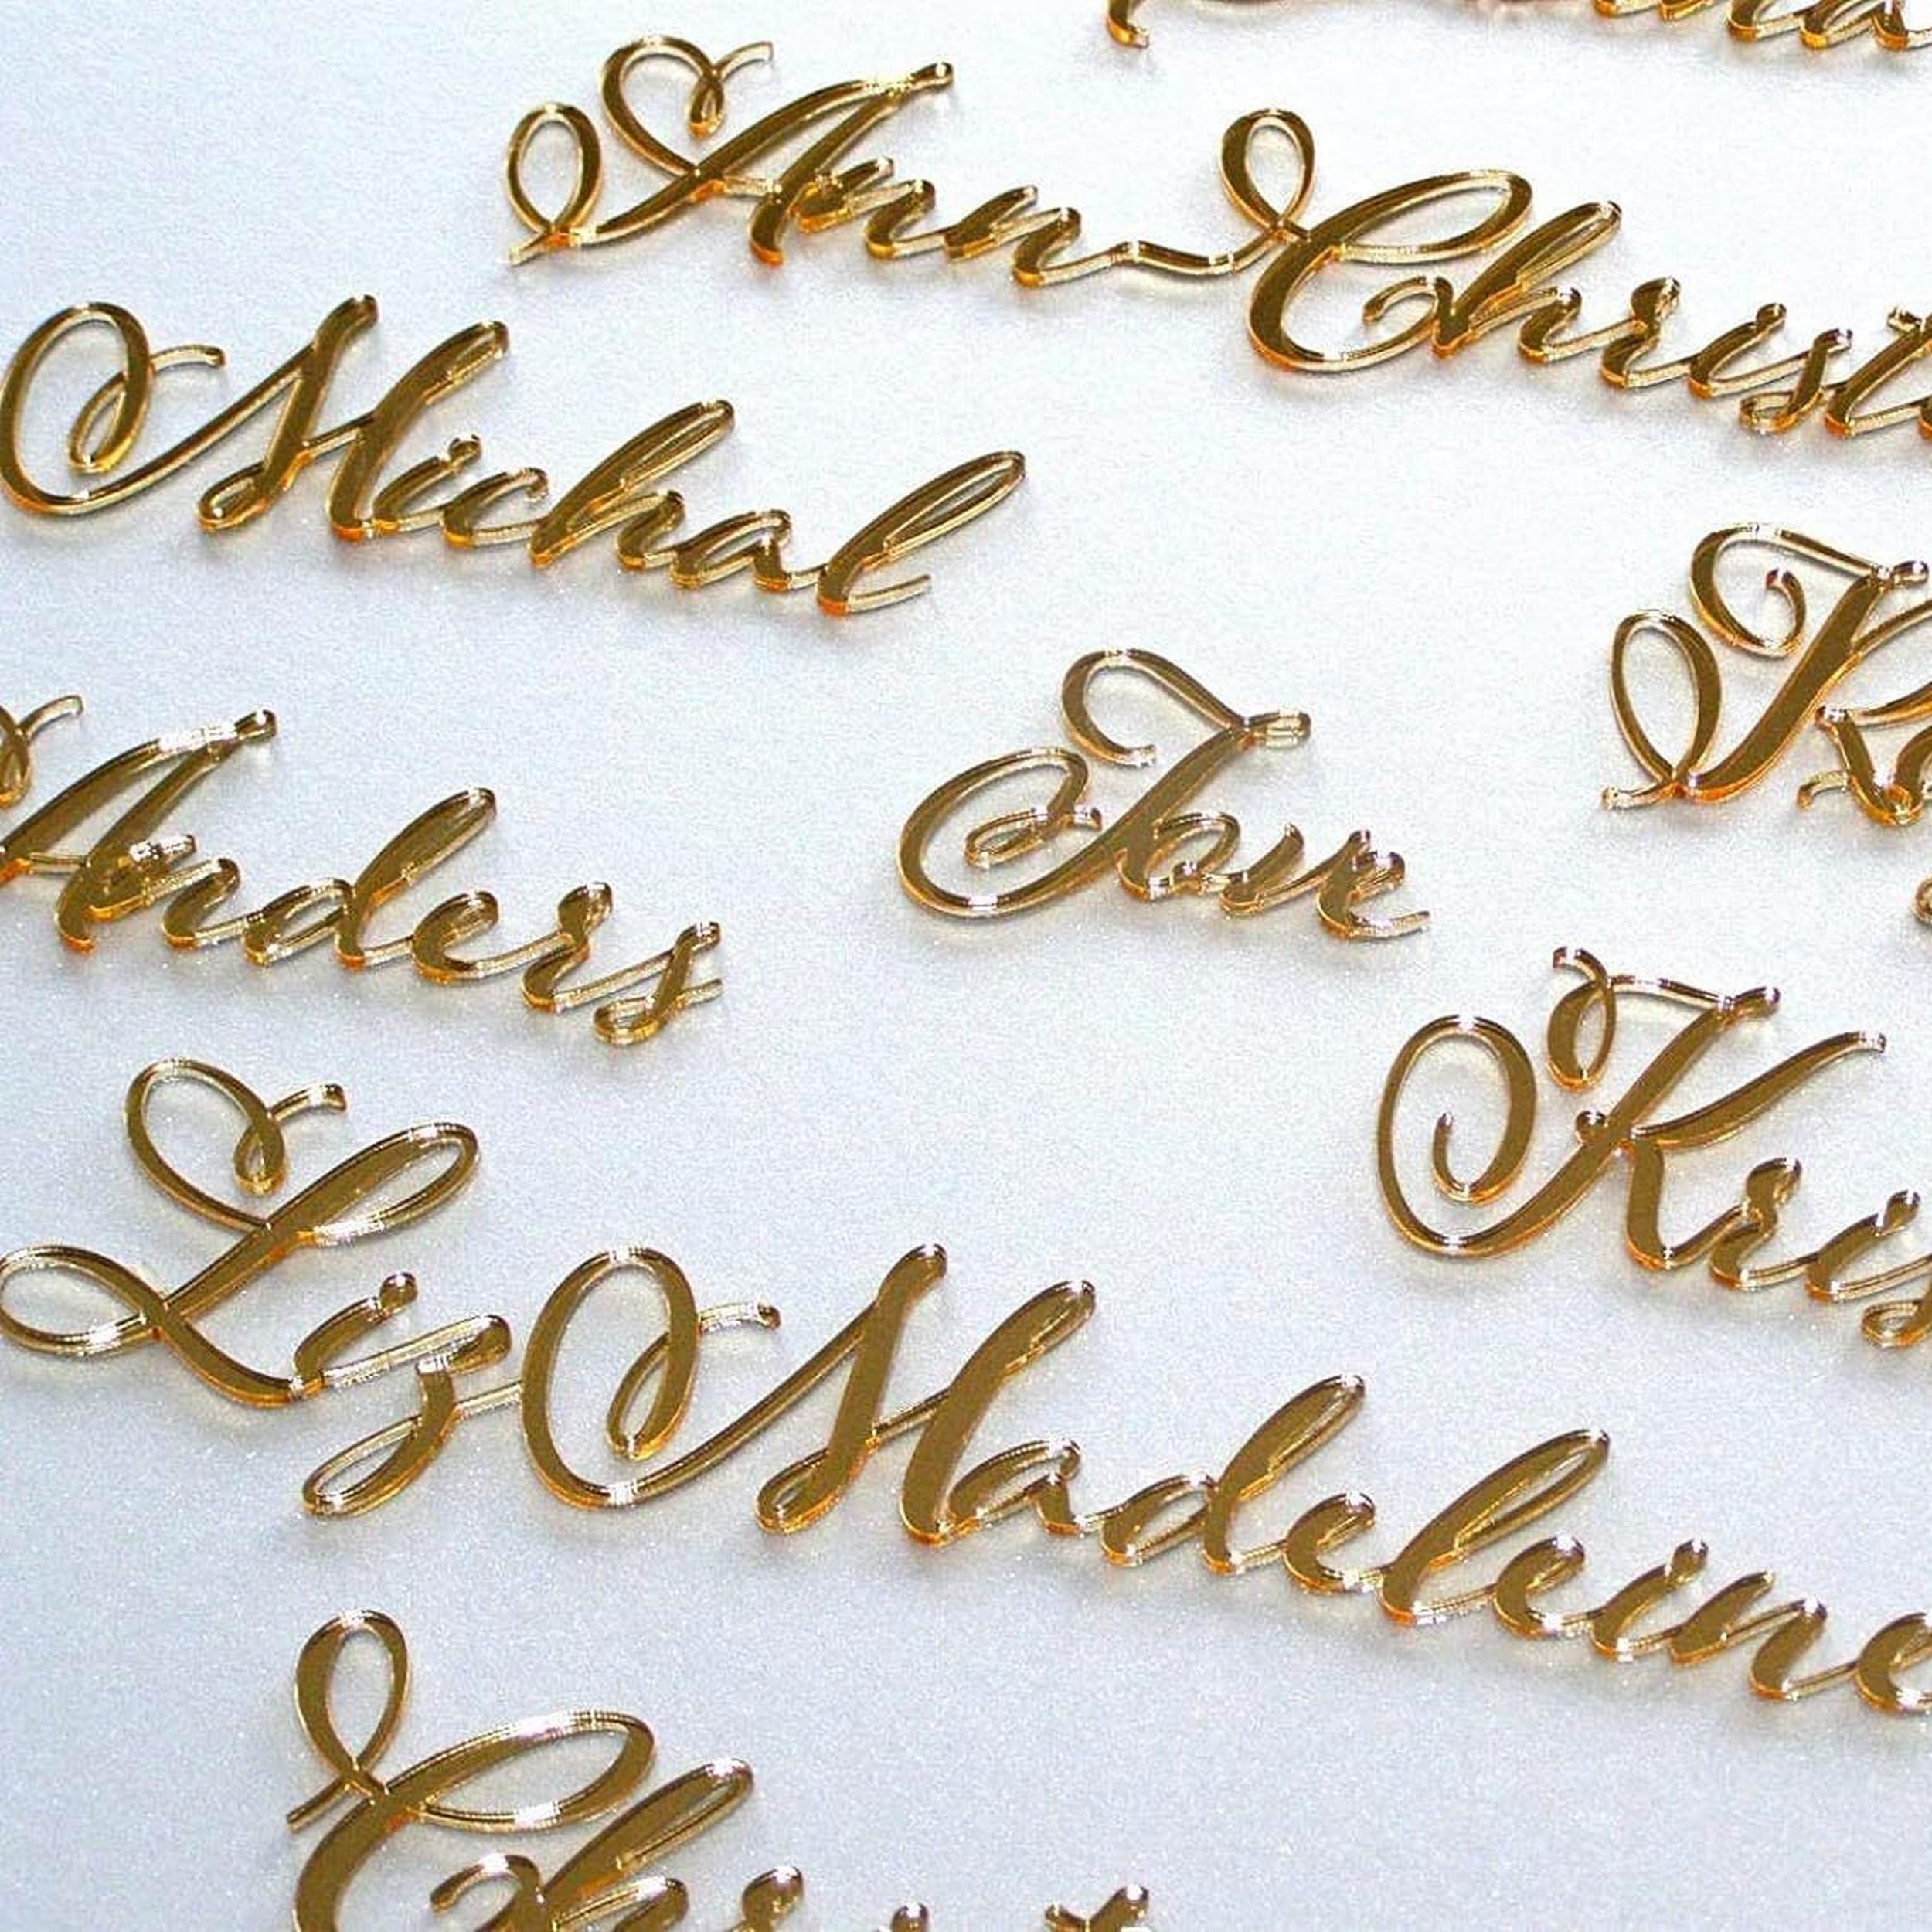 Ann-Christ
Michal
Anders
Tove
Kris
Liz Madeleine
Christ